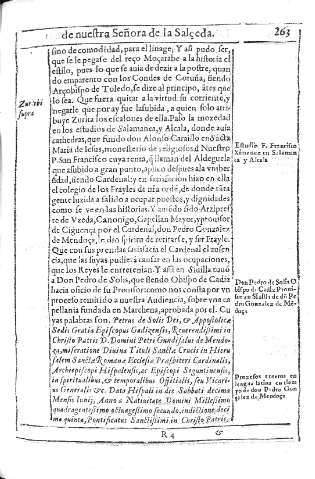 de nuestra Señora de la Salçeda.
263
sino de comodidad, para el linage, Y asi pudo ser,
que se le pegase del reço Moçarabe a la historia el
estilo, pues lo que se auia de dezir a la postre, quan
do emparento con los Condes de Coruña, siendo
Arçobispo de Toledo, se dize al principio, ates que
lo sea. Que fuera quitar a la virtud su corriente, y
negarle que por ay no fue la subida, a quien solo atri-
buye Zurita los escalones de ella. Paso la mocedad
en los estudios de Salamanca, y Alcala, donde auia
cathedras, que fundo don Alonso Carrillo en Scta
Maria de Iesus, monesterio de religiosos de Nuestro
P. San Francisco cuya renta, q llaman del Aldeguela
que subida a gran punto, aplico despues a la vniuer-
sidad, siendo Cardenal: y en satisfacion hizo en ella
el colegio de los Frayles de nra orde, de donde tata
gente luzida a salido a ocupar puestos, y dignidades
como se ve en las historias. Y auiedo sido Arzipres-
te de Vzeda, Canonigo, Capellan Mayor, y prouisor
de Çiguença por el Cardenal, don Pedro Gonzalez
de Mendoça, le dio espiritu de retirarse, y ser Frayle.
Que con sus prendas satisfacia el Cardenal el ausen-
cia, que las suyas pudiera causar en las ocupaciones,
que los Reyes le entretenian. Y asi en Siuilla tuuo
a Don Pedro de Solis, que siendo Obispo de Cadiz
hacia oficio de Prouisor como nos consta por vn
proceso remitido a nuestra Audiencia, sobre vna ca
pellania fundada en Marchena, aprobada por el. Cu
yas palabras son. Petrus de Solis Dei, & Apostolica
Sedis Gratia Episcopus Gadizensis, Reuerendissimi in
Christo Patris D. Domini Petri Gundisalui de Mendo-
za, miseratione Diuina Tituli Sancta Crucis in Hieru
salem Sancta Romana Ecclesia Presbiteri Cardinalis,
Archiepiscopi Hispalensis, ac Episcopi Seguntinensis,
in spiritualibus, & temporalibus Offitialis, seu Vicari
us Generalis &c. Dato Hispali in die Sabbati decima
Mensis Iunij, Anno a Natiuitate Domini Millesimo
quadragentesimo octuagessimo secundo, indictione, deci
ma quinta, Pontificatus Sanctissimi in Christo Patris,
R 4
&
Zur. vbi
supra
Estudio F. Francisco
Ximenez en Salaman
ca y Alcala
Don Pedro de Solis O
bispo de Cadiz Proui-
sor en Siuilla de do Pe
dro Gonzalez de Me-
doça
Procesos
lengua latina en tiem
po de don Pedro Gon
zalez de Mendoça